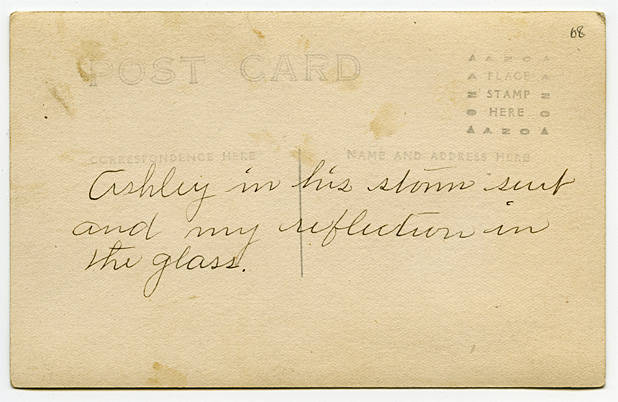 68
POST CARD
AZOA
A PLACE A
N STAMP N
O HERE O
AAZOA
CORRESPONDENCE HERE
NAME AND ADDRESS HERE
Ashley in his storm suit
and my reflection in
the glass.